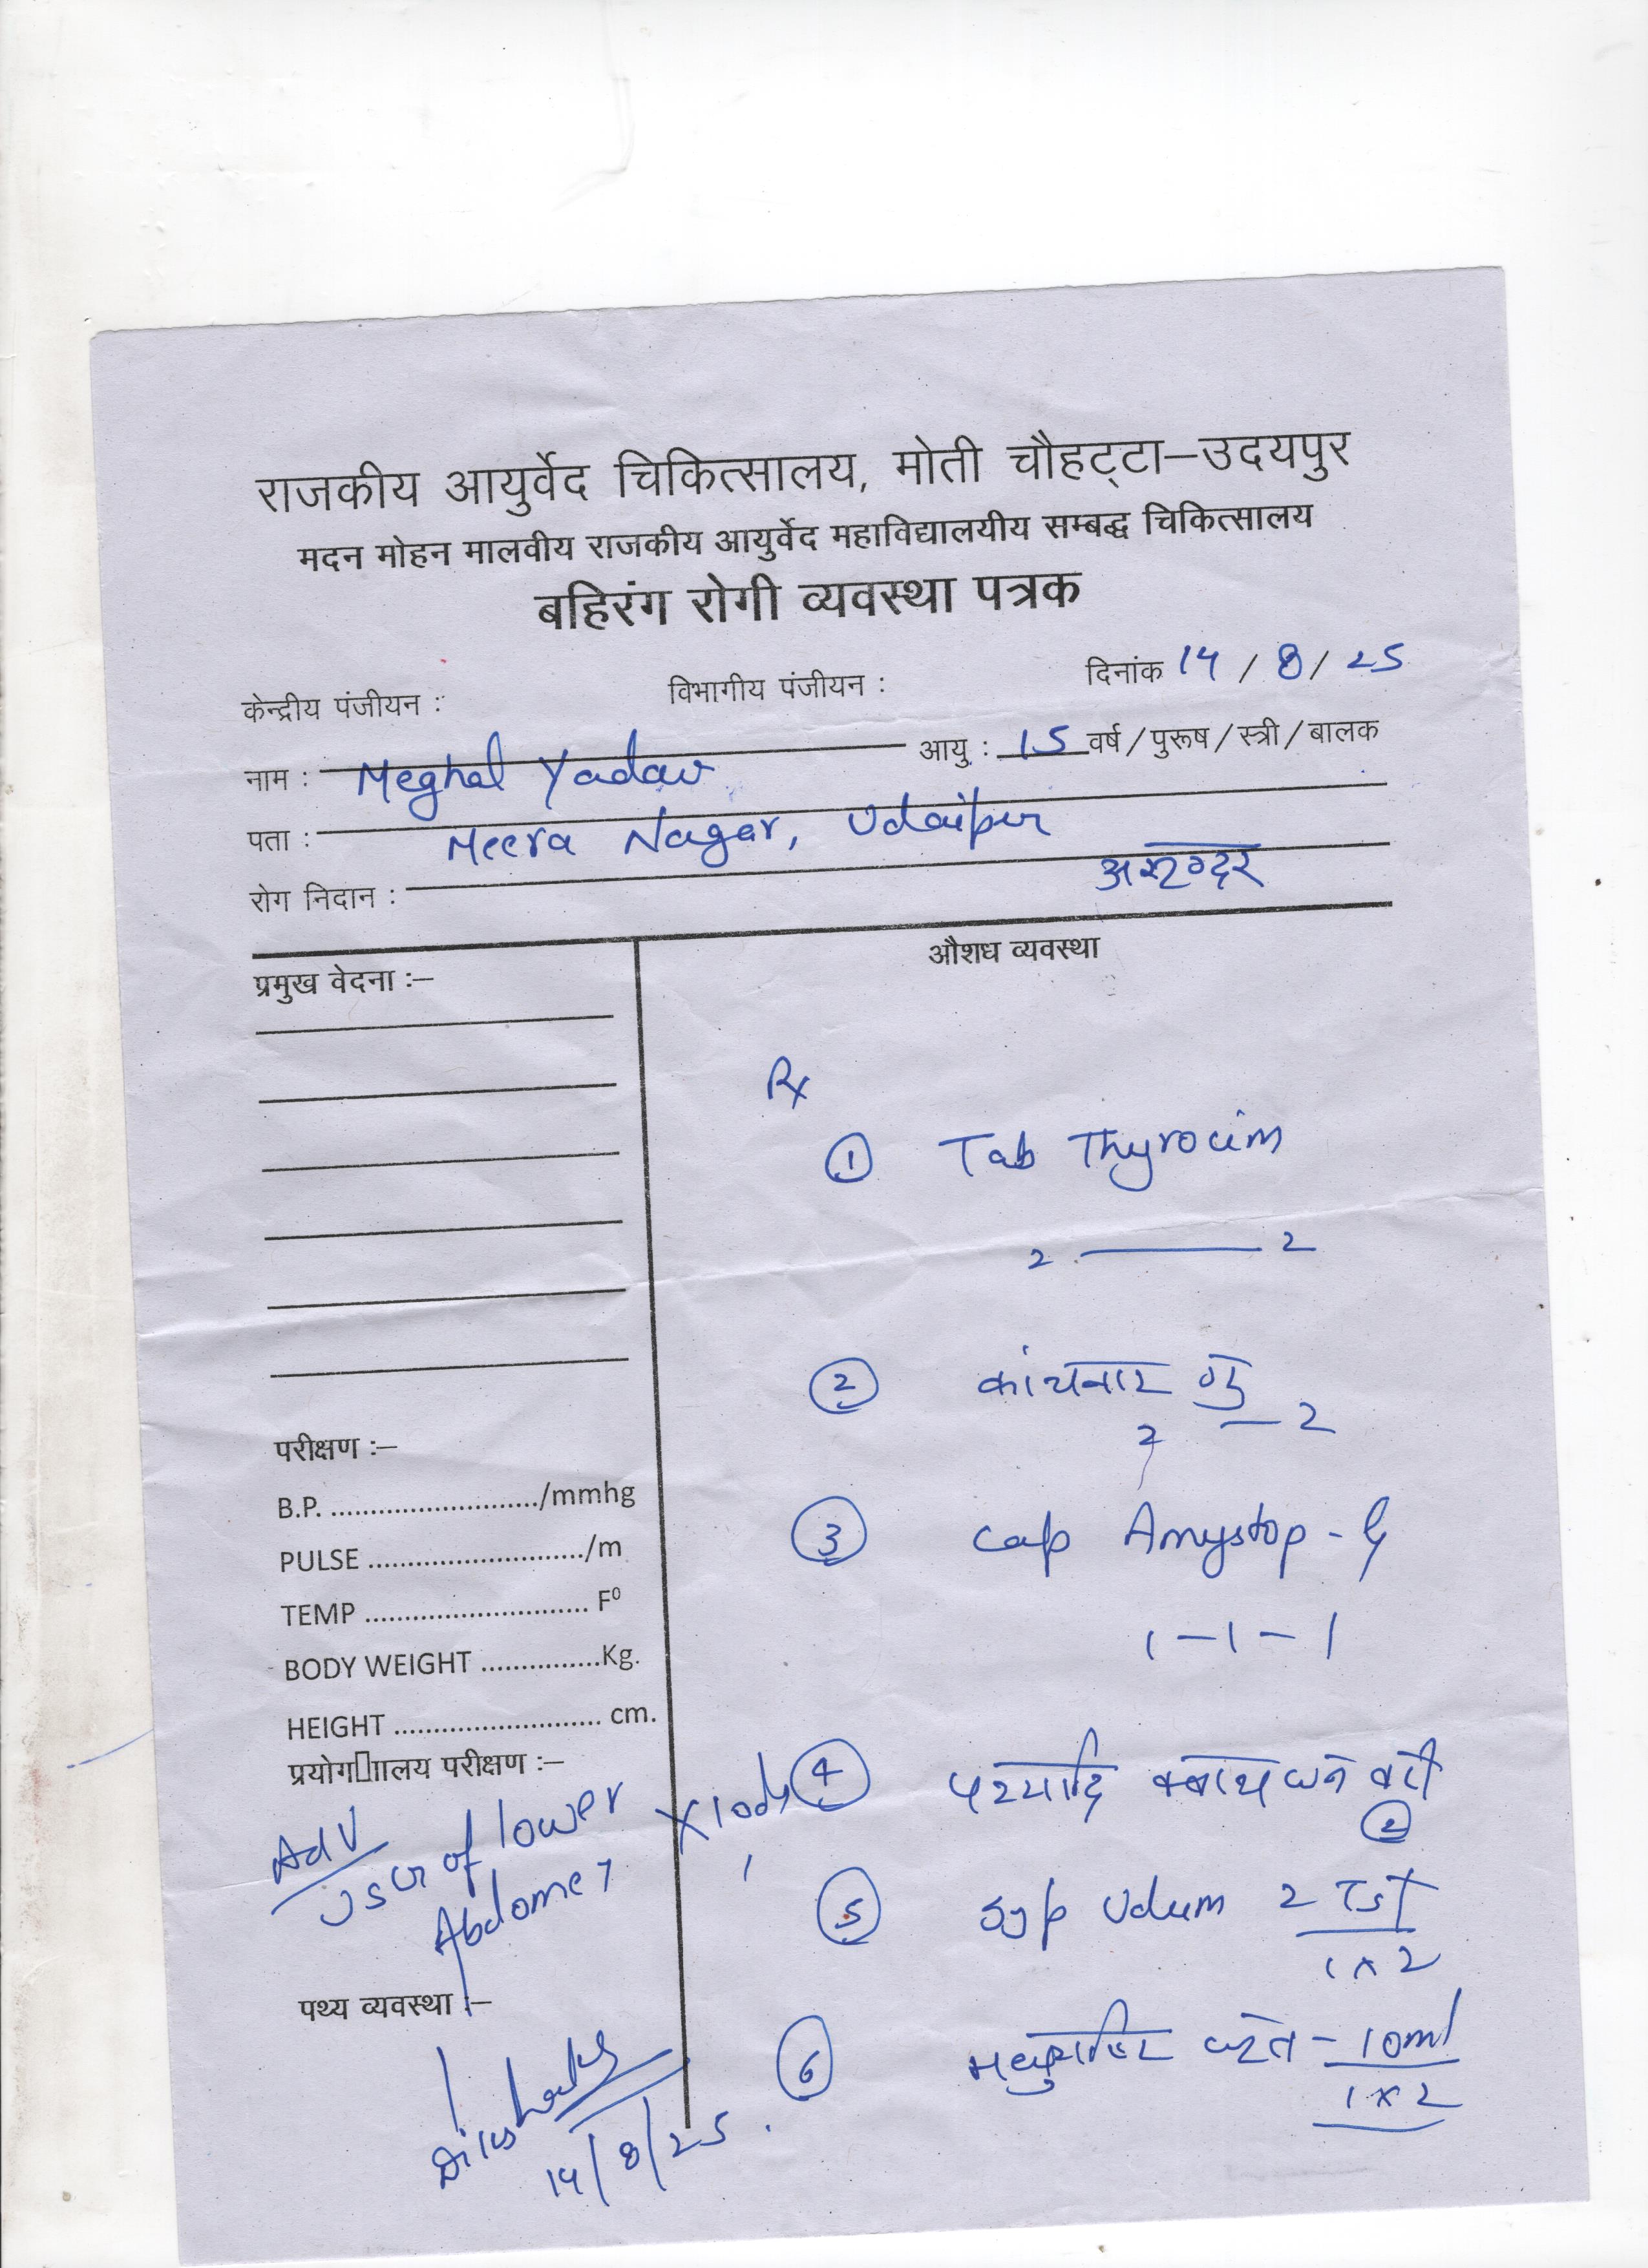 राजकीय आयुर्वेद चिकित्सालय, मोती चौहट्टा–उदयपुर
मदन मोहन मालवीय राजकीय आयुर्वेद महाविद्यालयीय सम्बद्ध चिकित्सालय
बहिरंग रोगी व्यवस्था पत्रक
केन्द्रीय पंजीयन : विभागीय पंजीयन : दिनांक 14 / 8 / 25
नाम : Meghal Yadav आयु : 15 वर्ष/पुरूष/स्त्री/बालक
पता : Meera Nagar, Udaipur
रोग निदान : असृग्दर
प्रमुख वेदना :–
औशध व्यवस्था
Rx
① Tab Thyrocim
2 — 2
② कांचनार गु
2 — 2
③ Cap Amystop - G
1 – 1 – 1
परीक्षण :–
B.P. ........................../mmhg
PULSE .........................../m
TEMP ............................ F⁰
BODY WEIGHT ...............Kg.
HEIGHT .......................... cm.
प्रयोग□ालय परीक्षण :–
Adv
USG of lower
Abdomen
X 10 days
④ पथ्यादि क्वाथ घन वटी
②
⑤ Syp Udum 2 TSF
1 x 2
⑥ – 10ml
1 x 2
पथ्य व्यवस्था :–
14/8/25